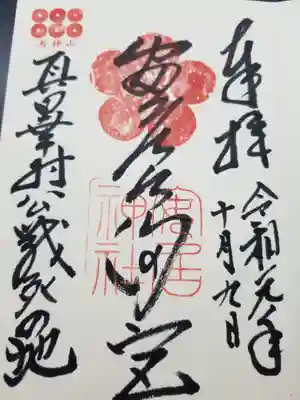 奉拝
令和元年
十月九日
安居天満宮
安居
神社
真田幸村公戦死の地
天神山